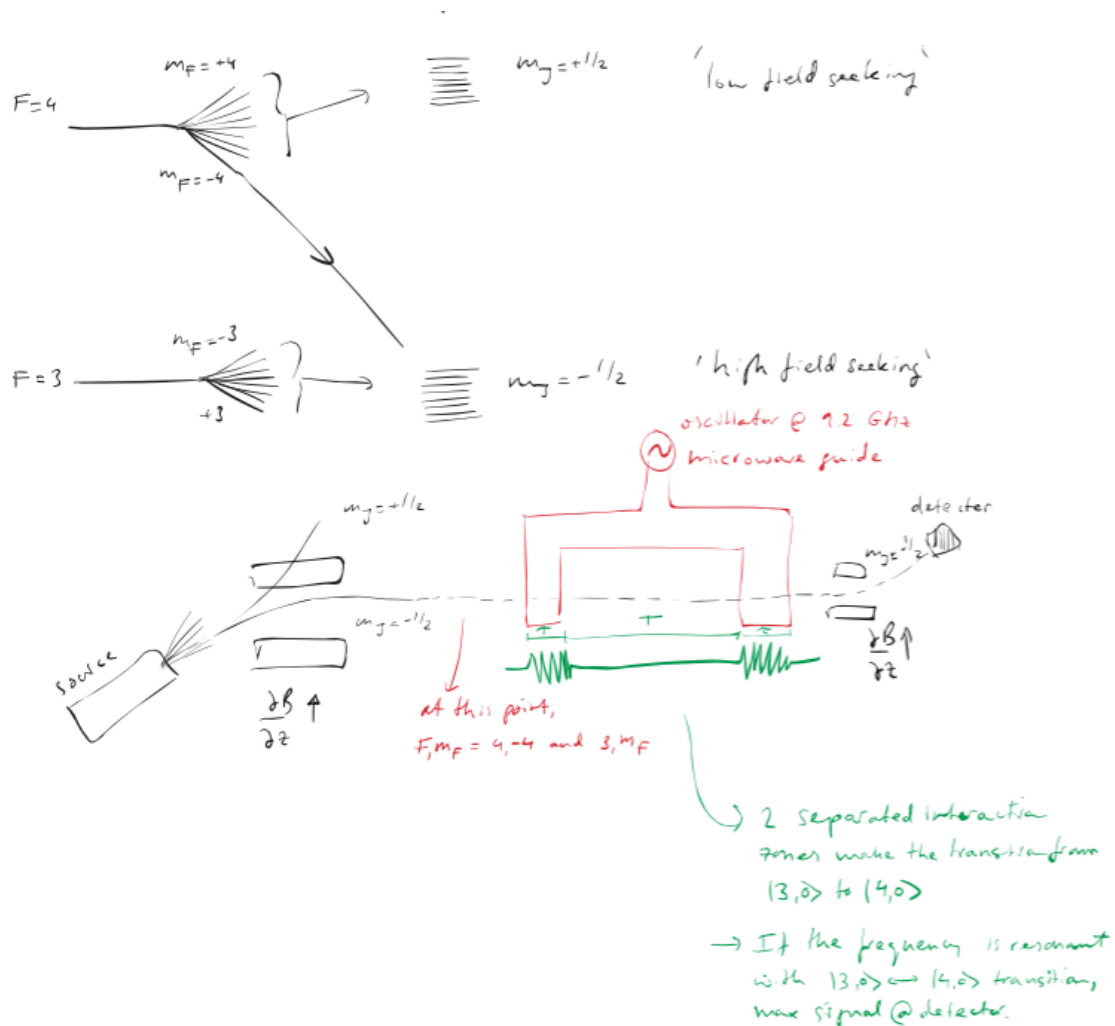 m_F=+4
m_J=+1/2
'low field seeking'
F=4
m_F=-4
m_F=-3
F=3
m_J=-1/2
'high field seeking'
+3
oscillator @ 9.2 GHz
microwave guide
m_J=+1/2
detector
m_J=-1/2
m_J=-1/2
source
τ
T
τ
∂B/∂z ↑
∂B/∂z ↑
at this point,
F,m_F = 4,-4 and 3,m_F
→ 2 separated interaction
zones make the transition from
|3,0> to |4,0>
→ If the frequency is resonant
with |3,0> ↔ |4,0> transition,
max signal @ detector.